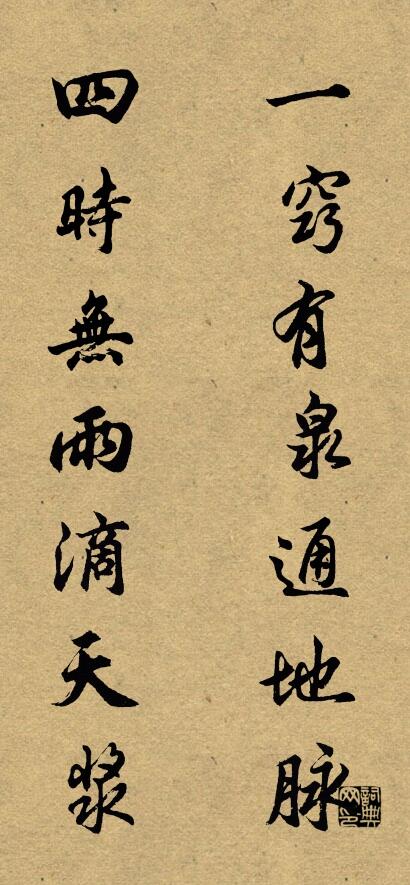 一竅有泉通地脉
四時無雨滴天漿
詞典網印